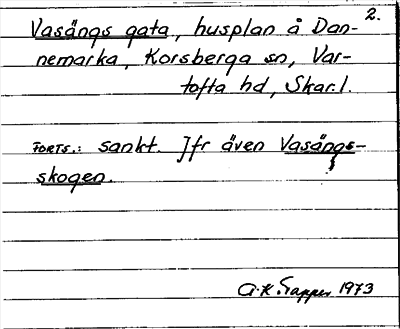 2.
Vasängs gata, husplan å Dan-
nemarka, Korsberga sn, Var-
tofta hd, Skar. l.
FORTS.: sankt. Jfr även Vasängs-
skogen.
G. K. Sapper 1973